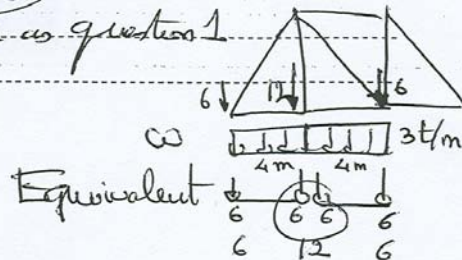 as question 1
6 12 6
ω 3 t/m
4 m 4 m
Equivalent
6 6 6 6
6 12 6